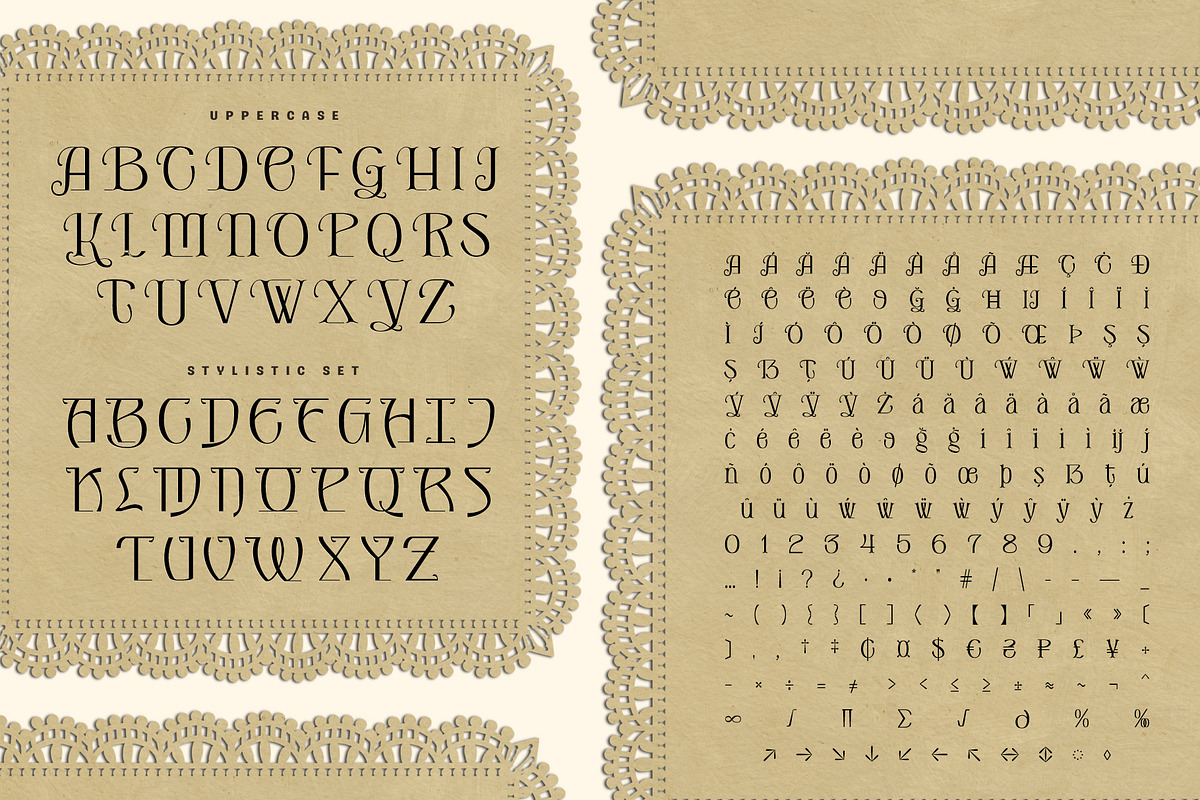 UPPERCASE
ABCDEFGHIJ
KLMNOPQRS
TUVWXYZ
STYLISTIC SET
ABCDEFGHIJ
KLMNOPQRS
TUVWXYZ
Á Ă Â Ä À Å Ã Æ Ç Ċ Ð
É Ê Ë È Ğ Ġ Ħ IJ Í Î Ï İ
Ì Ó Ô Ö Ò Ø Õ Œ Þ Ş
Ú Û Ü Ù Ẃ Ŵ Ẅ Ẁ
Ý Ŷ Ÿ Ỳ Ż á ă â ä à å ã æ
ċ é ê ë è ğ ġ í î ï i ì ij
ñ ó ô ö ò ø õ œ þ ş ú
û ü ù ẃ ŵ ẅ ẁ ý ŷ ÿ ỳ ż
0 1 2 3 4 5 6 7 8 9 . , : ;
… ! ¡ ? ¿ · • * " # / \ - – — _
~ ( ) { } [ ] ⟨ ⟩ 【 】 「 」 « » 〔
〕 † ‡ ₵ $ € ₴ ₽ £ ¥ +
− × ÷ = ≠ > < ≤ ≥ ± ≈ ~ ¬ ^
∞ ∫ ∏ ∑ √ ∂ % ‰
↗ → ↘ ↓ ↙ ← ↖ ↔ ↕ ◌ ◊